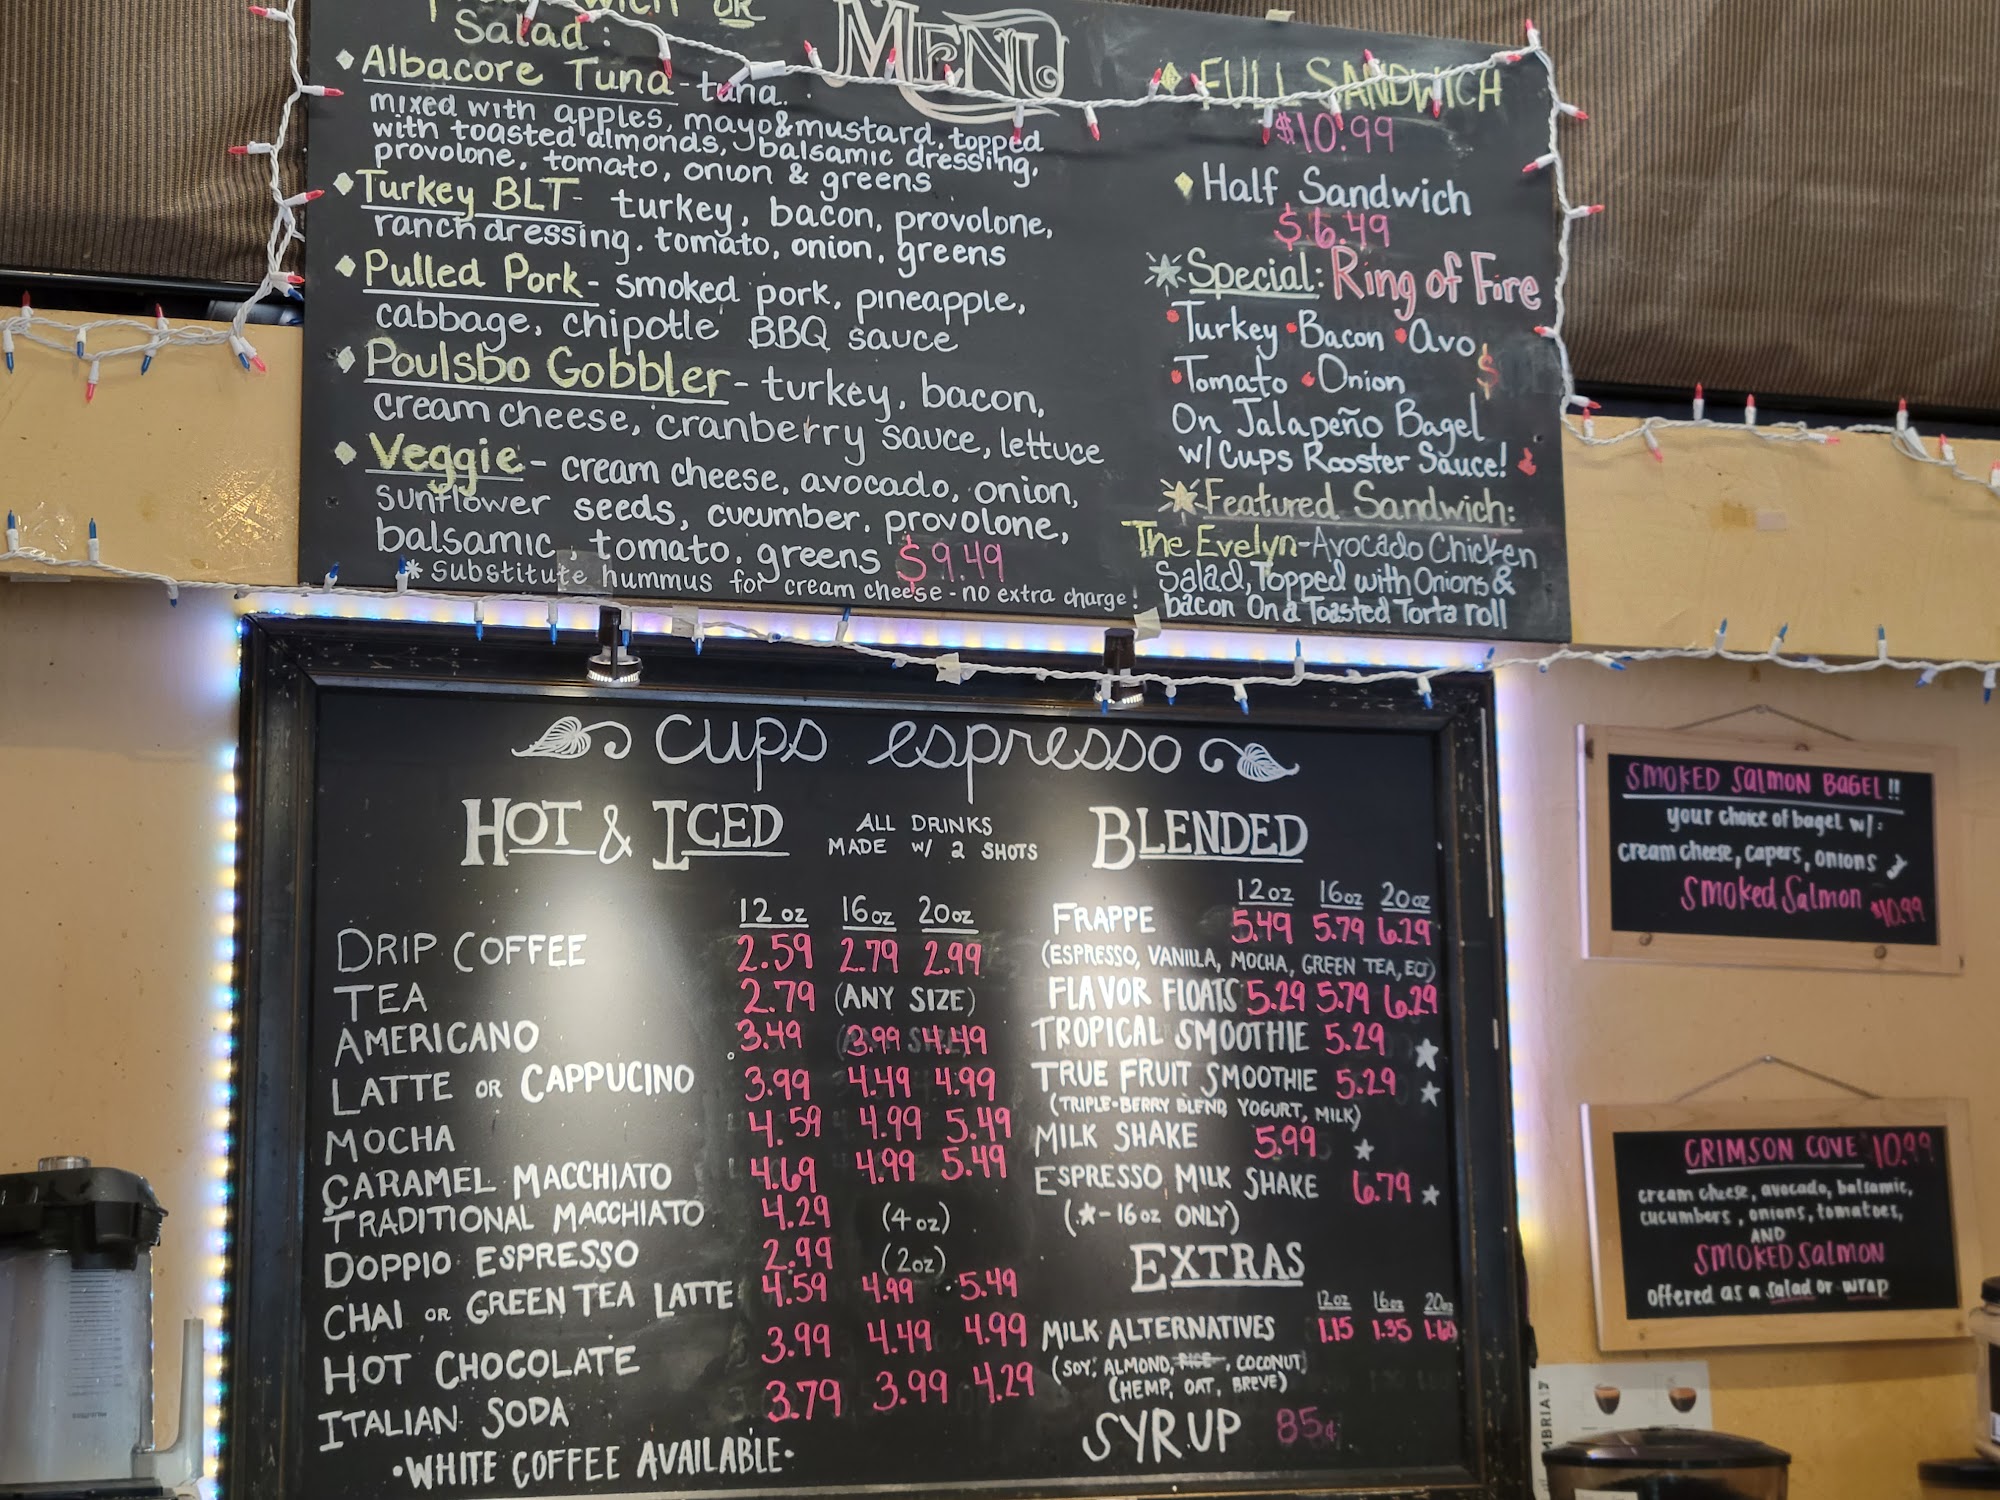 OR
Salad:
MENU
Albacore Tuna - tuna
mixed with apples, mayo & mustard, topped
with toasted almonds, balsamic dressing,
provolone, tomato, onion & greens
Turkey BLT - turkey, bacon, provolone,
ranch dressing, tomato, onion, greens
Pulled Pork - smoked pork, pineapple,
cabbage, chipotle BBQ sauce
Poulsbo Gobbler - turkey, bacon,
cream cheese, cranberry sauce, lettuce
Veggie - cream cheese, avocado, onion,
sunflower seeds, cucumber, provolone,
balsamic, tomato, greens $9.49
* substitute hummus for cream cheese - no extra charge!
FULL SANDWICH
$10.99
Half Sandwich
$6.49
Special: Ring of Fire
Turkey • Bacon • Avo
• Tomato • Onion $
On Jalapeño Bagel
w/ Cups Rooster Sauce!
Featured Sandwich:
The Evelyn - Avocado Chicken
Salad, Topped with Onions &
bacon On a Toasted Torta roll
cups espresso
HOT & ICED
ALL DRINKS
MADE w/ 2 SHOTS
12 oz 16 oz 20 oz
DRIP COFFEE 2.59 2.79 2.99
TEA 2.79 (ANY SIZE)
AMERICANO 3.49 3.99 4.49
LATTE OR CAPPUCINO 3.99 4.49 4.99
MOCHA 4.59 4.99 5.49
CARAMEL MACCHIATO 4.69 4.99 5.49
TRADITIONAL MACCHIATO 4.29 (4 oz)
DOPPIO ESPRESSO 2.99 (2oz)
CHAI OR GREEN TEA LATTE 4.59 4.99 5.49
HOT CHOCOLATE 3.99 4.49 4.99
ITALIAN SODA 3.79 3.99 4.29
• WHITE COFFEE AVAILABLE •
BLENDED
12oz 16oz 20oz
FRAPPE 5.49 5.79 6.29
(ESPRESSO, VANILLA, MOCHA, GREEN TEA, ECT)
FLAVOR FLOATS 5.29 5.79 6.29
TROPICAL SMOOTHIE 5.29 ★
TRUE FRUIT SMOOTHIE 5.29 ★
(TRIPLE-BERRY BLEND, YOGURT, MILK)
MILK SHAKE 5.99 ★
ESPRESSO MILK SHAKE 6.79 ★
(★ - 16oz ONLY)
EXTRAS
12oz 16oz 20oz
MILK ALTERNATIVES 1.15 1.35
(SOY, ALMOND, RICE, COCONUT)
(HEMP, OAT, BREVE)
SYRUP 85¢
SMOKED SALMON BAGEL!!
your choice of bagel w/:
cream cheese, capers, onions
Smoked Salmon $10.99
CRIMSON COVE 10.99
cream cheese, avocado, balsamic,
cucumbers, onions, tomatoes,
AND
SMOKED SALMON
offered as a salad or wrap